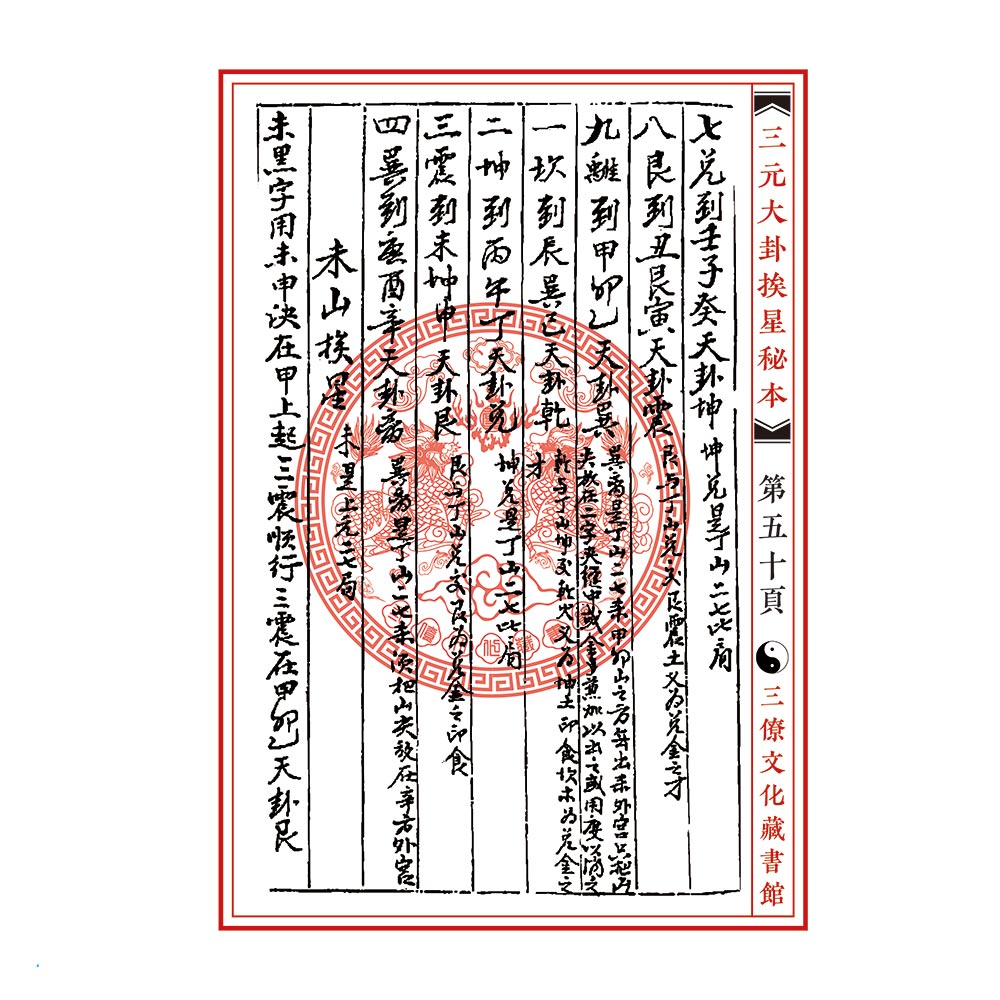 三元大卦挨星秘本
第五十頁
三僚文化藏書館
七兌到壬子癸天卦坤 坤兌是丁山二七比肩
八艮到丑艮寅天卦震 艮与丁山兌交 艮震土又为兌金之才
九離到甲卯乙天卦巽 巽离是丁山二七来甲卯山之方每出来外宫只把山
夹放在二字夹缝中或金 兼加以出之或用度以消之
一坎到辰巽巳天卦乾 乾与丁山坤交乾火又为坤土印食坎木为兌金之
才
二坤到丙午丁天卦兌 坤兌是丁山二七比肩
三震到未坤申天卦艮 艮与丁山兌交艮为兌金之印食
四巽到庚酉辛天卦离 巽离是丁山二七来须把山夹放在辛方外宫
未山挨星 未是上元二七局
未黑字用未申决在甲上起三震顺行三震在甲卯乙天卦艮